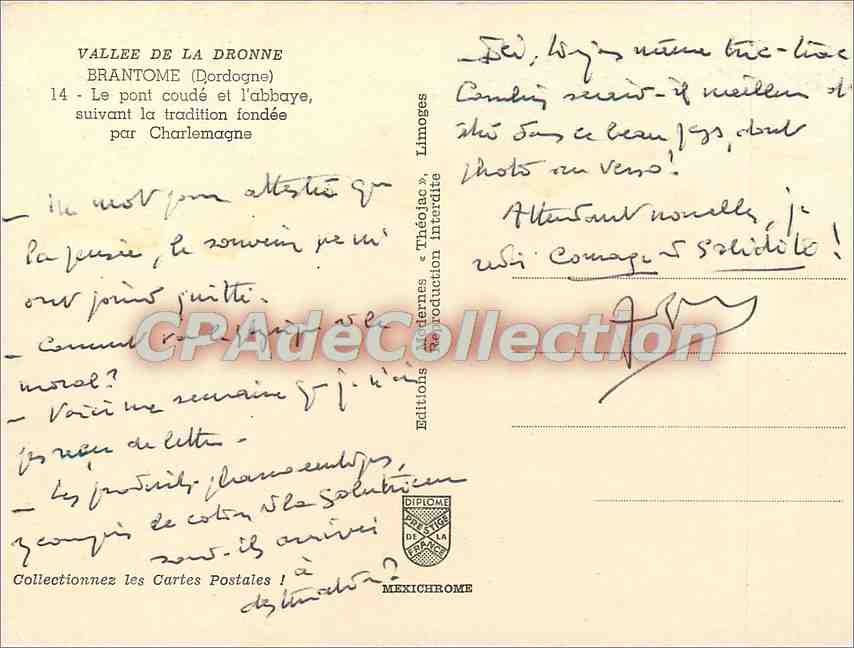 VALLEE DE LA DRONNE
BRANTOME (Dordogne)
14 - Le pont coudé et l'abbaye,
suivant la tradition fondée
par Charlemagne
- Un mot pour attester que
la pensée, le souvenir ne m'
ont point quitté.
- Comment va le physique et le
moral?
- Voici une semaine que je n'ai
pas reçu de lettre -
- Les produits pharmaceutiques,
y compris de coton et la
sont-ils arrivés
à
destination?
Collectionnez les Cartes Postales !
Editions Modernes « Théojac », Limoges
Reproduction interdite
DIPLOME
PRESTIGE
DE LA
FRANCE
MEXICHROME
- Ici, toujours même tric-trac
Combien serait-il meilleur d'
être dans ce beau pays, dont
photo au verso!
Attendant nouvelles, je
redis Courage et Solidité!
CPAdeCollection